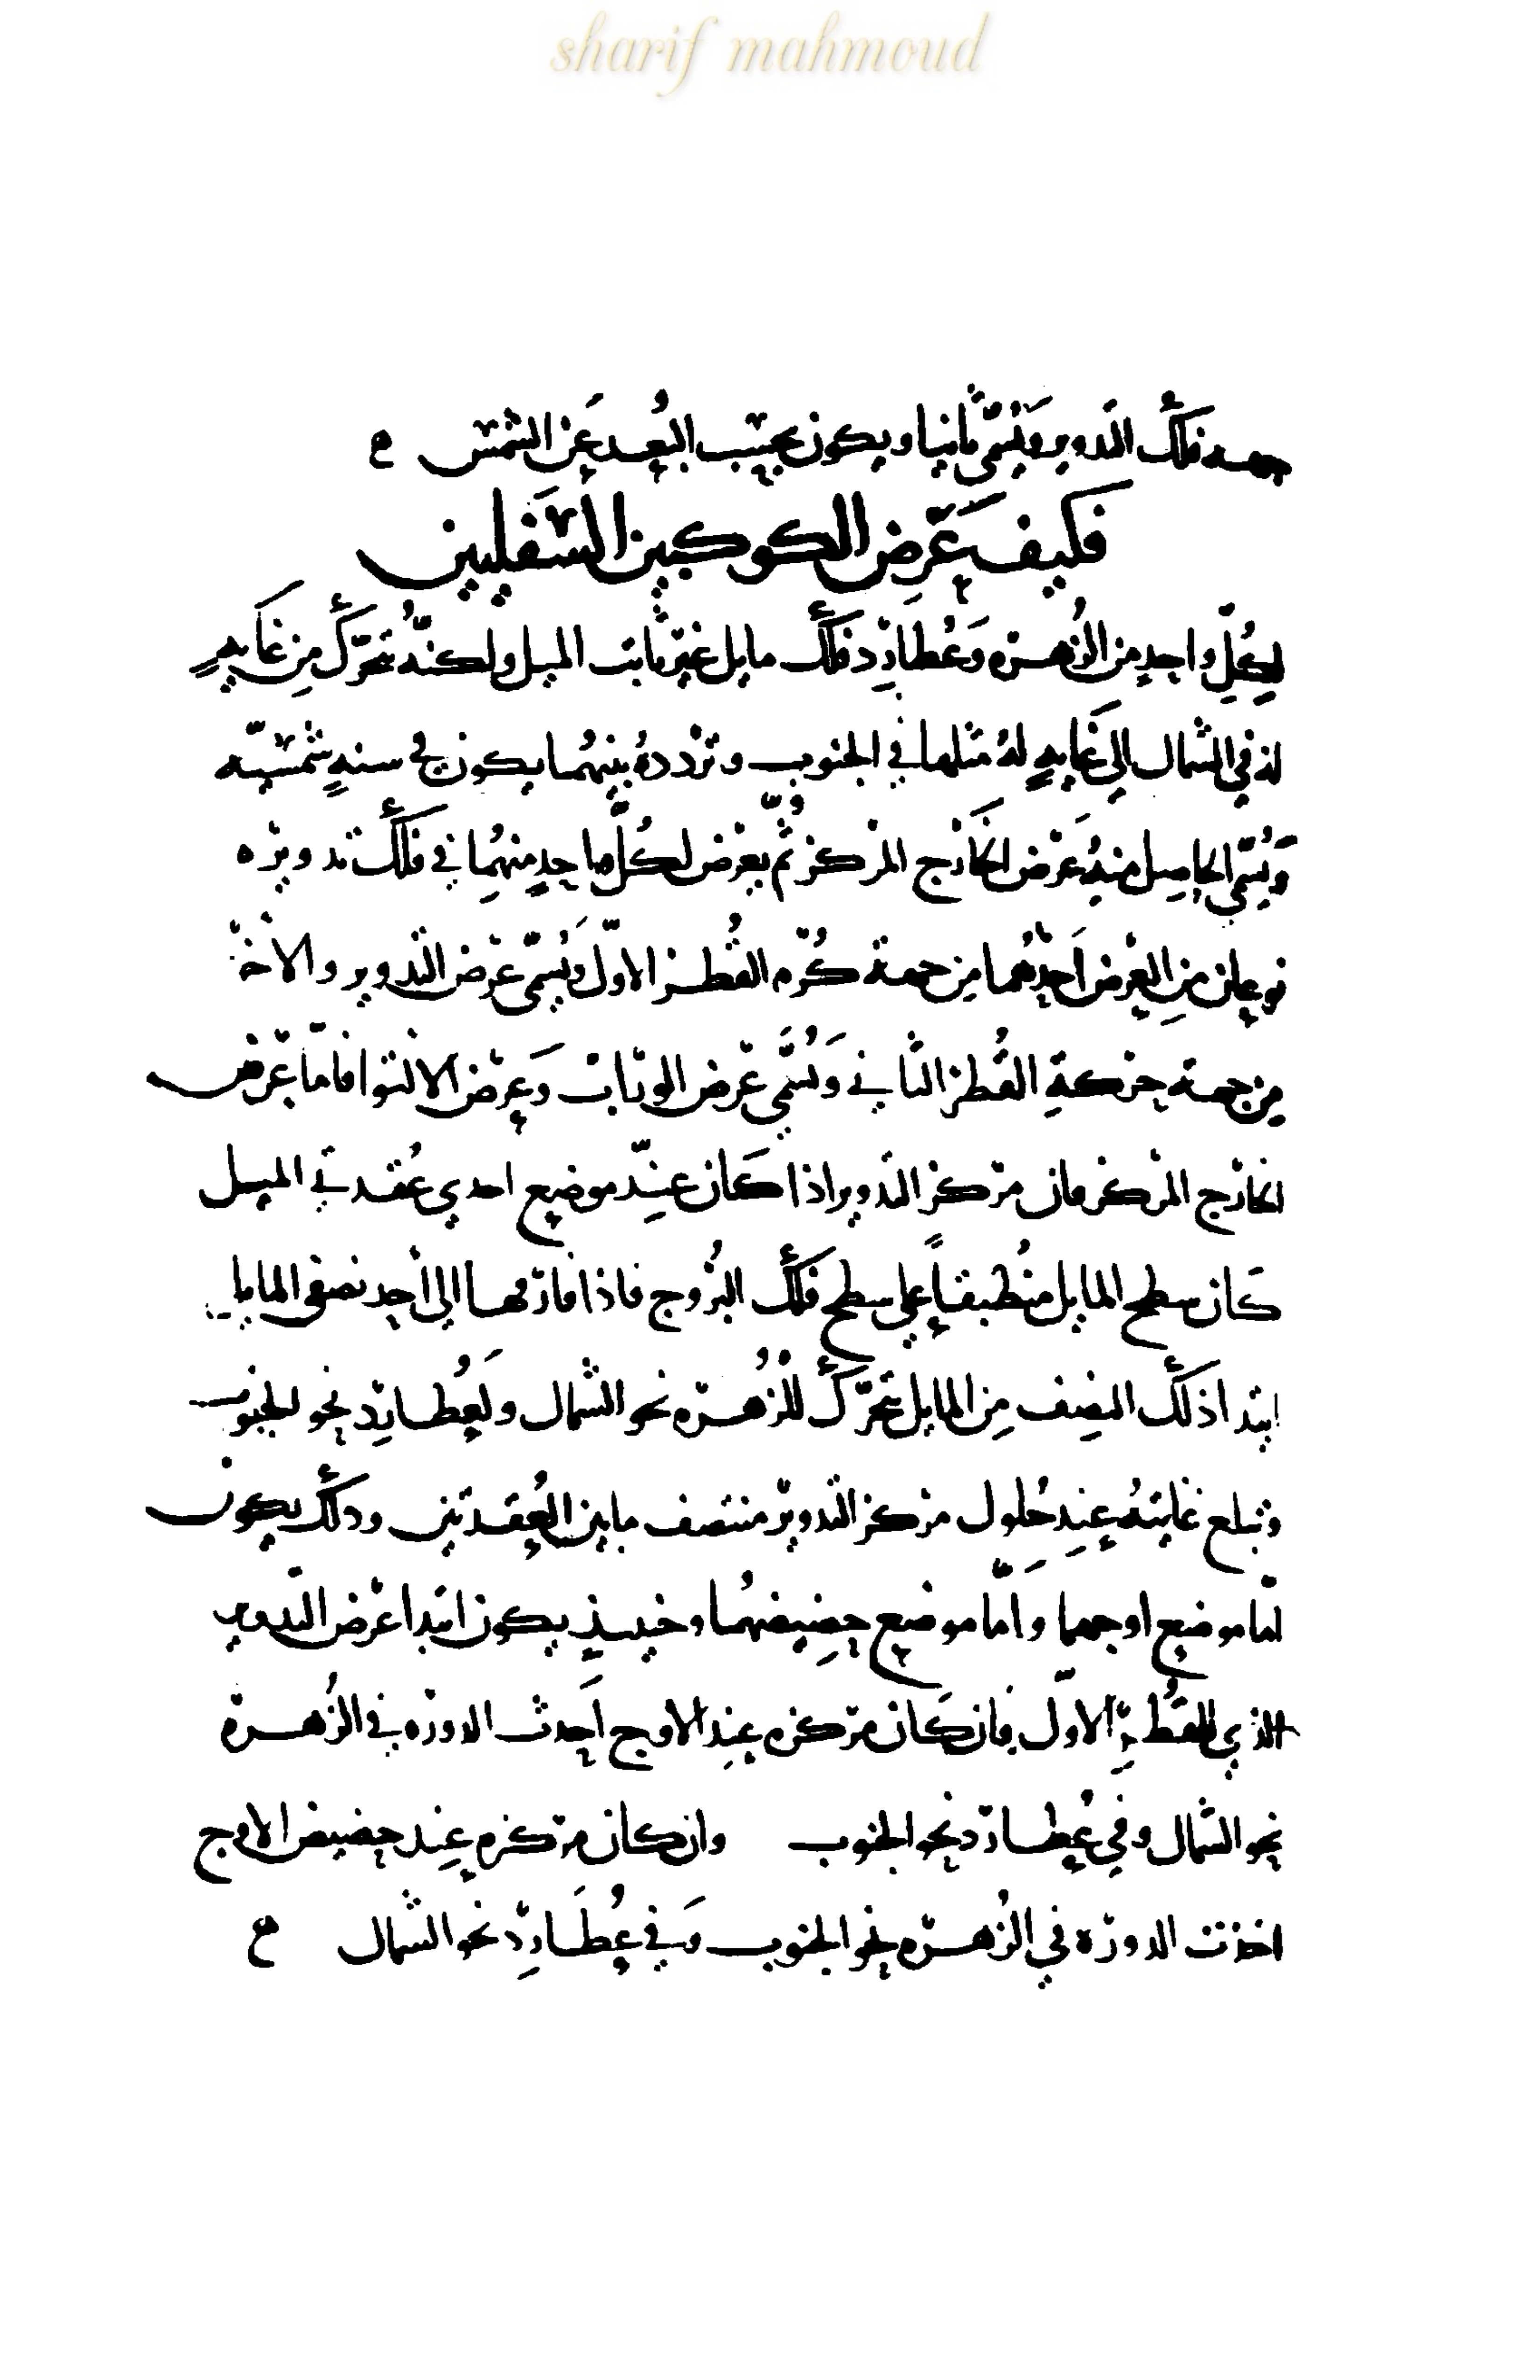 sharif mahmoud
جهة فلك التدوير ويسمّى ثانيا ويكون بحسب البُعد عَن الشمس
فكيف عَرض الكوكبين السّفليين
لكُلِّ واحدٍ من الزُهرة وَعُطارد فلك مايل غير ثابت الميل ولكنّه يتحرّك مِن غَايةٍ
له في الشمال الى غَايةٍ لهُ مثلها في الجنوب وتردده بينهُما يكون في سنةٍ شمسيّه
وَيُسمّى الحاصل منهُ عَرض الخَارج المركز ثُمّ يعرض لكُلّ واحدٍ منهُما في فلك تدويره
نوعان من العرض احدهُما مِن جهة القُطر الاوّل ويُسمّى عرض التدوير والاخر
مِن جهة حركةِ القُطر الثاني وَيُسَمّى عرض الوراب وَعرض الالتوا فامّا عرض
الخارج المركز فان مركز التدوير اذا كَان عند موضع احدى عُقدتي الميل
كَان سطح المايل منُطبقاً على سطح فلك البرُوج فاذا فارقها الى احد نصفي المايل
ابتدا ذلك النصف مِن المايل يتحرّك للزُهرة نحو الشمال ولعُطارد نحو الجنوب
وتبلع غايتهُ عند حُلول مركز التدوير منتصف ما بين العُقدتين وذلك يكون
امّا موضع اوجهما وامّا موضع حضيضهُما وحينيذ يكون ابتدا عرض التدوير
الذي للقُطر الاوّل فان كَان مركزه عند الاوج اخذت الدورة في الزُهرة
نحو الشمال وفي عُطارد نحو الجنوب وان كان مركزه عند حضيض الاوج
اخذت الدورة في الزُهرة نحو الجنوب وَفي عُطَاردِ نحو الشمال